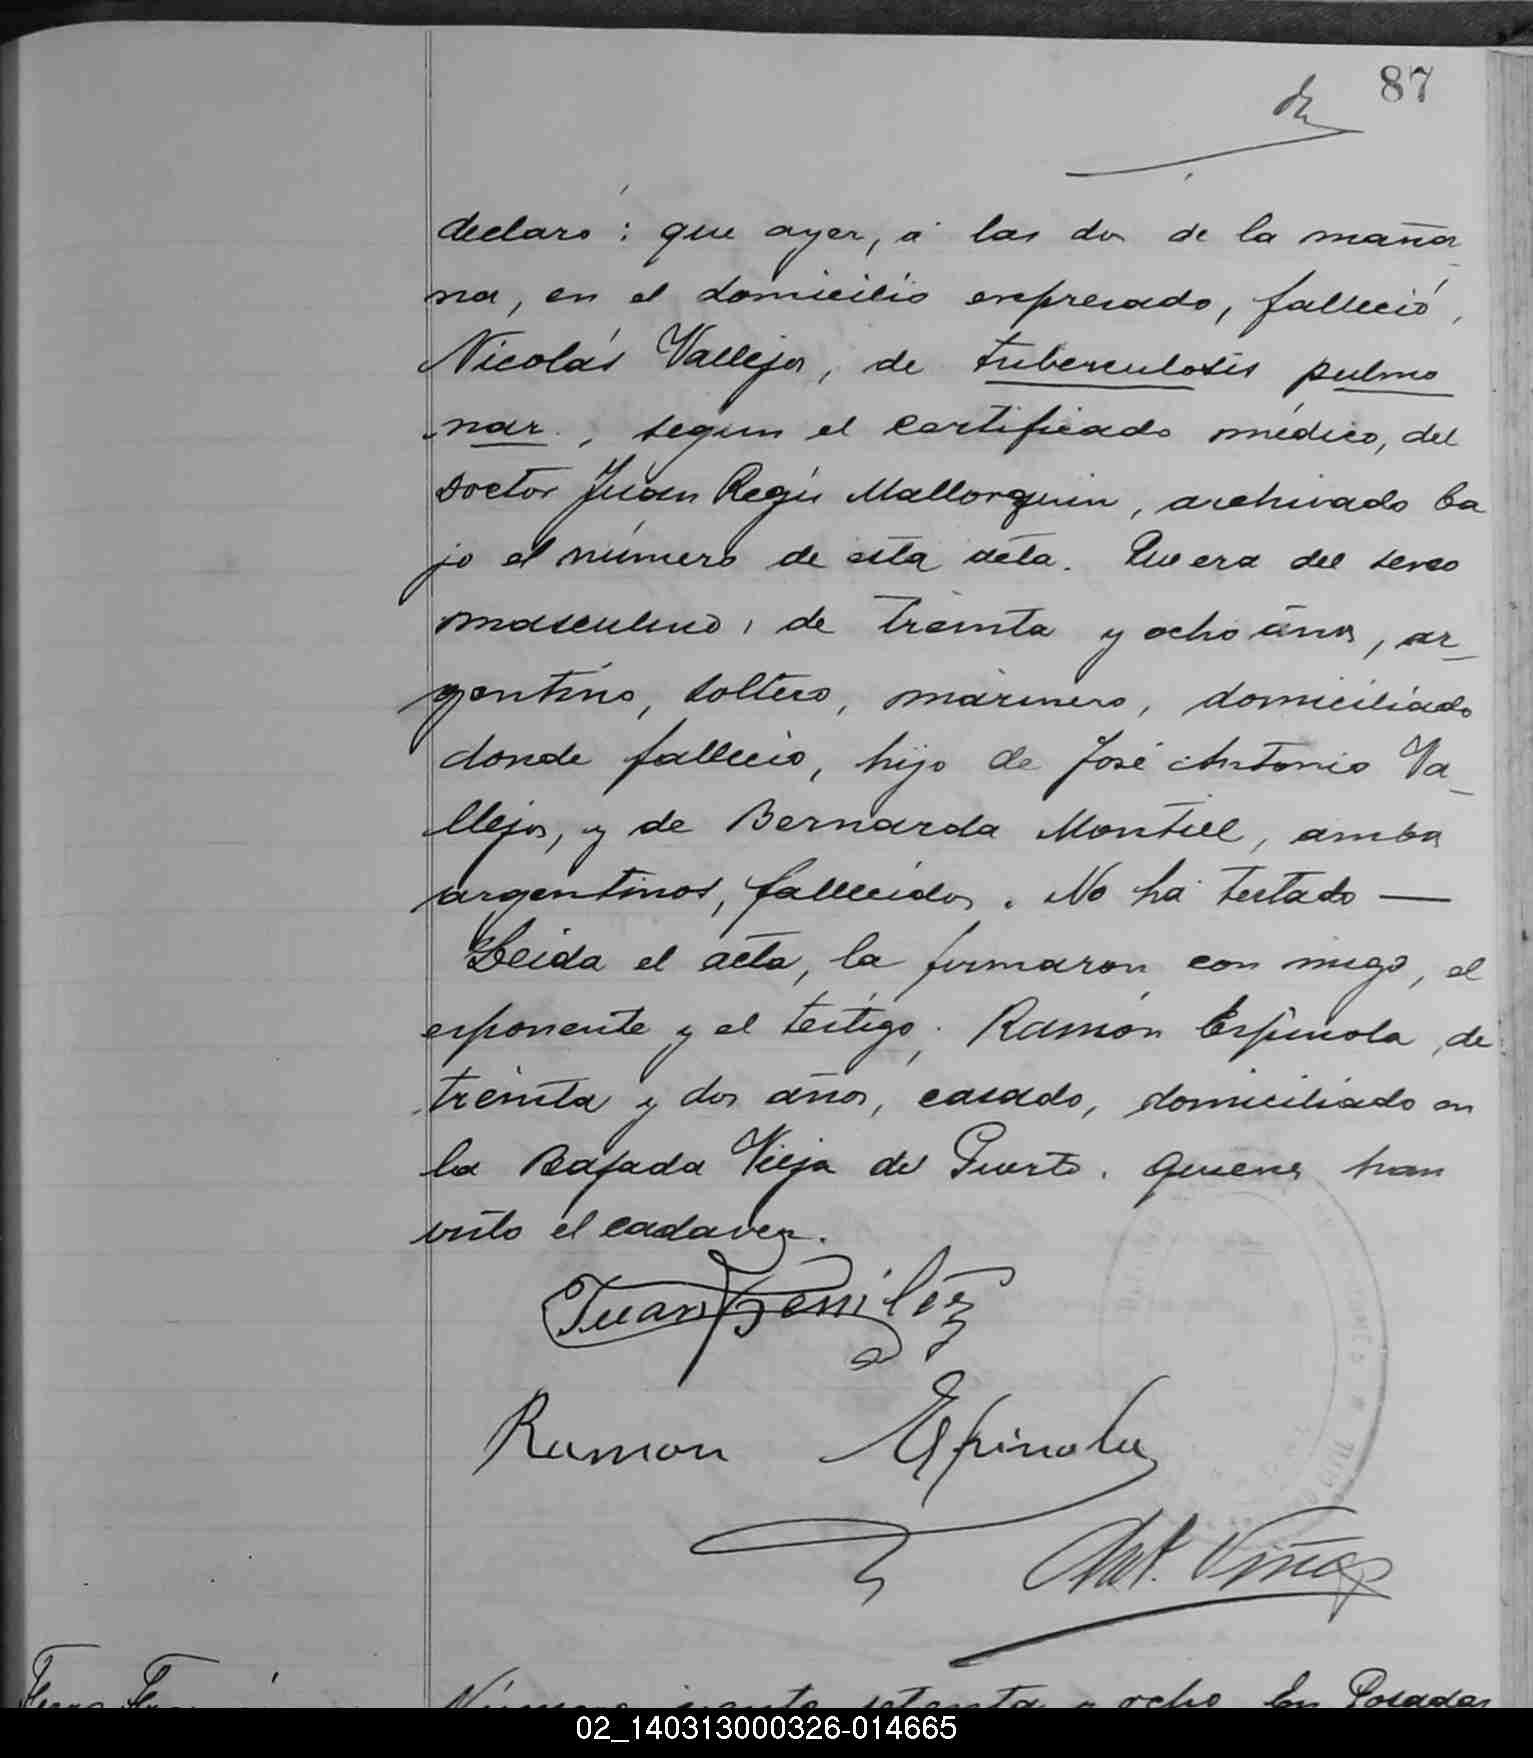 87
declaró: que ayer, á las dos de la maña
na, en el domicilio expresado, falleció,
Nicolás Vallejos, de tuberculosis pulmo
nar, segun el certificado médico, del
Doctor Juan Regis Mallorquin, archivado ba
jo el número de esta acta. Que era del sexo
masculino, de treinta y ocho años, ar_
gentino, soltero, marinero, domiciliado
donde falleció, hijo de José Antonio Va_
llejos, y de Bernarda Montiel, ambos
argentinos, fallecidos. No ha testado —
Leida el acta, la firmaron con migo, el
exponente y el testigo, Ramón Espinola, de
treinta y dos años, casado, domiciliado en
la Bajada Vieja del Puerto. quienes han
visto el cadaver.
Juan
Ramon Espinola
Ant. Viñas
Número ciento setenta y ocho En Posadas
02_140313000326-014665